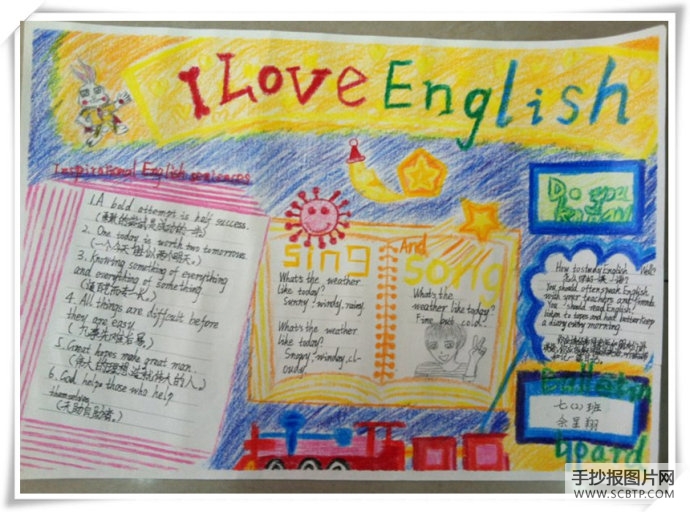 I Love English
Inspirational English sentences
1. A bold attempt is half success.
(勇敢的尝试是成功的一半)
2. One today is worth two tomorrows.
(一个今天胜似两个明天。)
3. Knowing something of everything
and everything of something.
(通百艺而专一长。)
4. All things are difficult before
they are easy.
(凡事先难后易。)
5. Great hopes make great man.
(伟大的理想造就伟大的人。)
6. God helps those who help
themselves
(天助自助者。)
sing And song
What's the weather
like today?
Sunny! windy, rainy.
What's the weather
like today?
Snowy! windoy, cl-
oudy
What's the
weather like today?
Fine but cold.
Do you
How to study English well?
You should often speak English
with your teachers and friends
You should read English,
listen to tapes and had better keep
a diary every morning.
English
七(2)班
余星翔
board
手抄报图片网
WWW.SCBTP.COM